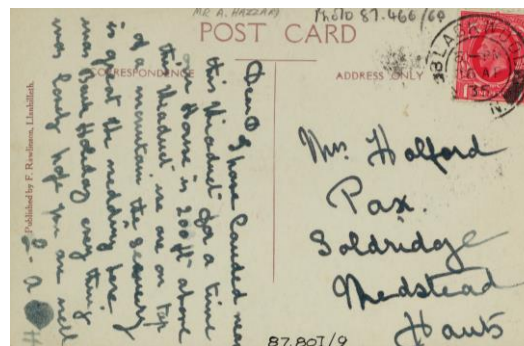 MR A. HAZZARD
Photo 87.466/60
POST CARD
CORRESPONDENCE
ADDRESS ONLY
BLACKWOOD
35
Published by F. Rawlinson, Llanhilleth.
Dear D I have landed near
this Viaduct for a time
our House is 200 ft above
this Viaduct we are on top
of a mountain the scenery
is great the wedding here
was Bank Holiday every thing
was lovely hope you are well
Mrs. Holford
Pax.
Soldridge
Medstead
Hants
87.801/9